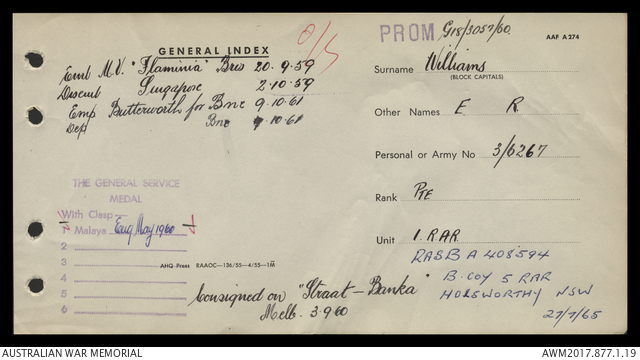 PROM G18/3057/60 AAF A274
GENERAL INDEX
O/S
Surname Williams
(BLOCK CAPITALS)
Emb M.V. "Flaminia" Bris 20.9.59
Disemb Singapore 2.10.59
Emp Butterworth for Bne 9.10.61
Dep Bne 9.10.61
Other Names E R
Personal or Army No 3/6267
Rank PTE
Unit 1. RAR
RASB A 408594
B. COY 5 RAR
HOLSWORTHY NSW
27/7/65
THE GENERAL SERVICE
MEDAL
With Clasp
1 Malaya Eng May 1960 1
2
3
4
5
6
AHQ Press RAAOC—136/55—4/55—1M
Consigned on "Straat - Banka"
Melb. 3.9.60
AUSTRALIAN WAR MEMORIAL AWM2017.877.1.19